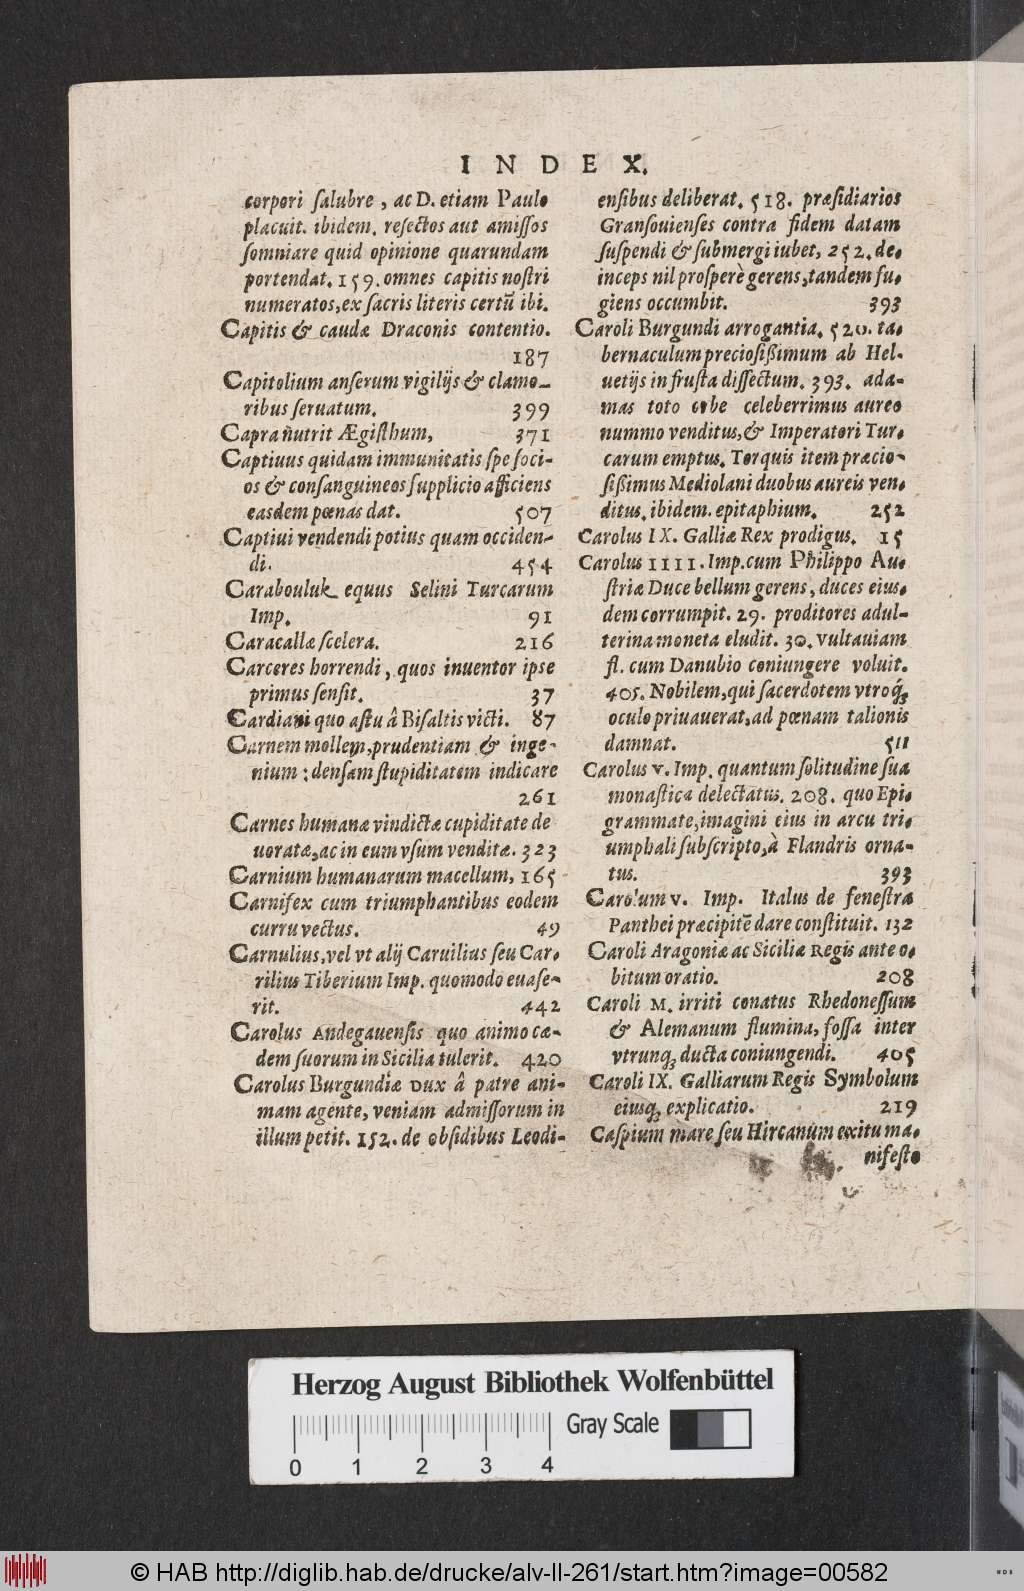 INDEX.
corpori ſalubre, ac D. etiam Paulo
placuit. ibidem. reſectos aut amiſſos
ſomniare quid opinione quarundam
portendat. 159. omnes capitis noſtri
numeratos, ex ſacris literis certũ ibi.
Capitis & caudæ Draconis contentio.
187
Capitolium anſerum vigilijs & clamo-
ribus ſeruatum. 399
Capra nutrit Ægiſthum, 371
Captiuus quidam immunitatis ſpe ſoci-
os & conſanguineos ſupplicio afficiens
easdem pœnas dat. 507
Captiui vendendi potius quam occiden-
di. 454
Carabouluk equus Selini Turcarum
Imp. 91
Caracallæ ſcelera. 216
Carceres horrendi, quos inuentor ipſe
primus ſenſit. 37
Cardiani quo aſtu â Biſaltis victi. 87
Carnem mollem, prudentiam & inge-
nium: denſam ſtupiditatem indicare
261
Carnes humanæ vindictæ cupiditate de
uoratæ, ac in eum vſum venditæ. 323
Carnium humanarum macellum, 165
Carnifex cum triumphantibus eodem
curru vectus. 49
Carnulius, vel vt alij Caruilius ſeu Car-
rilius Tiberium Imp. quomodo euaſe-
rit. 442
Carolus Andegauenſis quo animo cæ-
dem ſuorum in Sicilia tulerit. 420
Carolus Burgundiæ Dux â patre ani-
mam agente, veniam admiſſorum in
illum petit. 152. de obſidibus Leodi-
enſibus deliberat. 518. præſidiarios
Granſouienſes contra fidem datam
ſuſpendi & ſubmergi iubet, 252. de-
inceps nil proſperè gerens, tandem fu-
giens occumbit. 393
Caroli Burgundi arrogantia. 520. ta-
bernaculum precioſißimum ab Hel-
uetijs in fruſta diſſectum. 393. ada-
mas toto orbe celeberrimus aureo
nummo venditus, & Imperatori Tur-
carum emptus. Torquis item præcio-
ſißimus Mediolani duobus aureis ven-
ditus. ibidem. epitaphium. 252
Carolus IX. Galliæ Rex prodigus. 15
Carolus IIII. Imp. cum Philippo Au-
ſtriæ Duce bellum gerens, duces eius-
dem corrumpit. 29. proditores adul-
terina moneta eludit. 30. Vultauiam
fl. cum Danubio coniungere voluit.
405. Nobilem, qui ſacerdotem vtroq́;
oculo priuauerat, ad pœnam talionis
damnat. 511
Carolus V. Imp. quantum ſolitudine ſua
monaſtica delectatus. 208. quo Epi-
grammate, imagini eius in arcu tri-
umphali ſubſcripto, à Flandris orna-
tus. 393
Carolum V. Imp. Italus de feneſtra
Panthei præcipitẽ dare conſtituit. 132
Caroli Aragoniæ ac Siciliæ Regis ante o-
bitum oratio. 208
Caroli M. irriti conatus Rhedoneſſum
& Alemanum flumina, foſſa inter
vtrunq; ducta coniungendi. 405
Caroli IX. Galliarum Regis Symbolum
eiusq; explicatio. 219
Caſpium mare ſeu Hircanum exitu ma-
nifeſto
Herzog August Bibliothek Wolfenbüttel
Gray Scale
0 1 2 3 4
© HAB http://diglib.hab.de/drucke/alv-ll-261/start.htm?image=00582